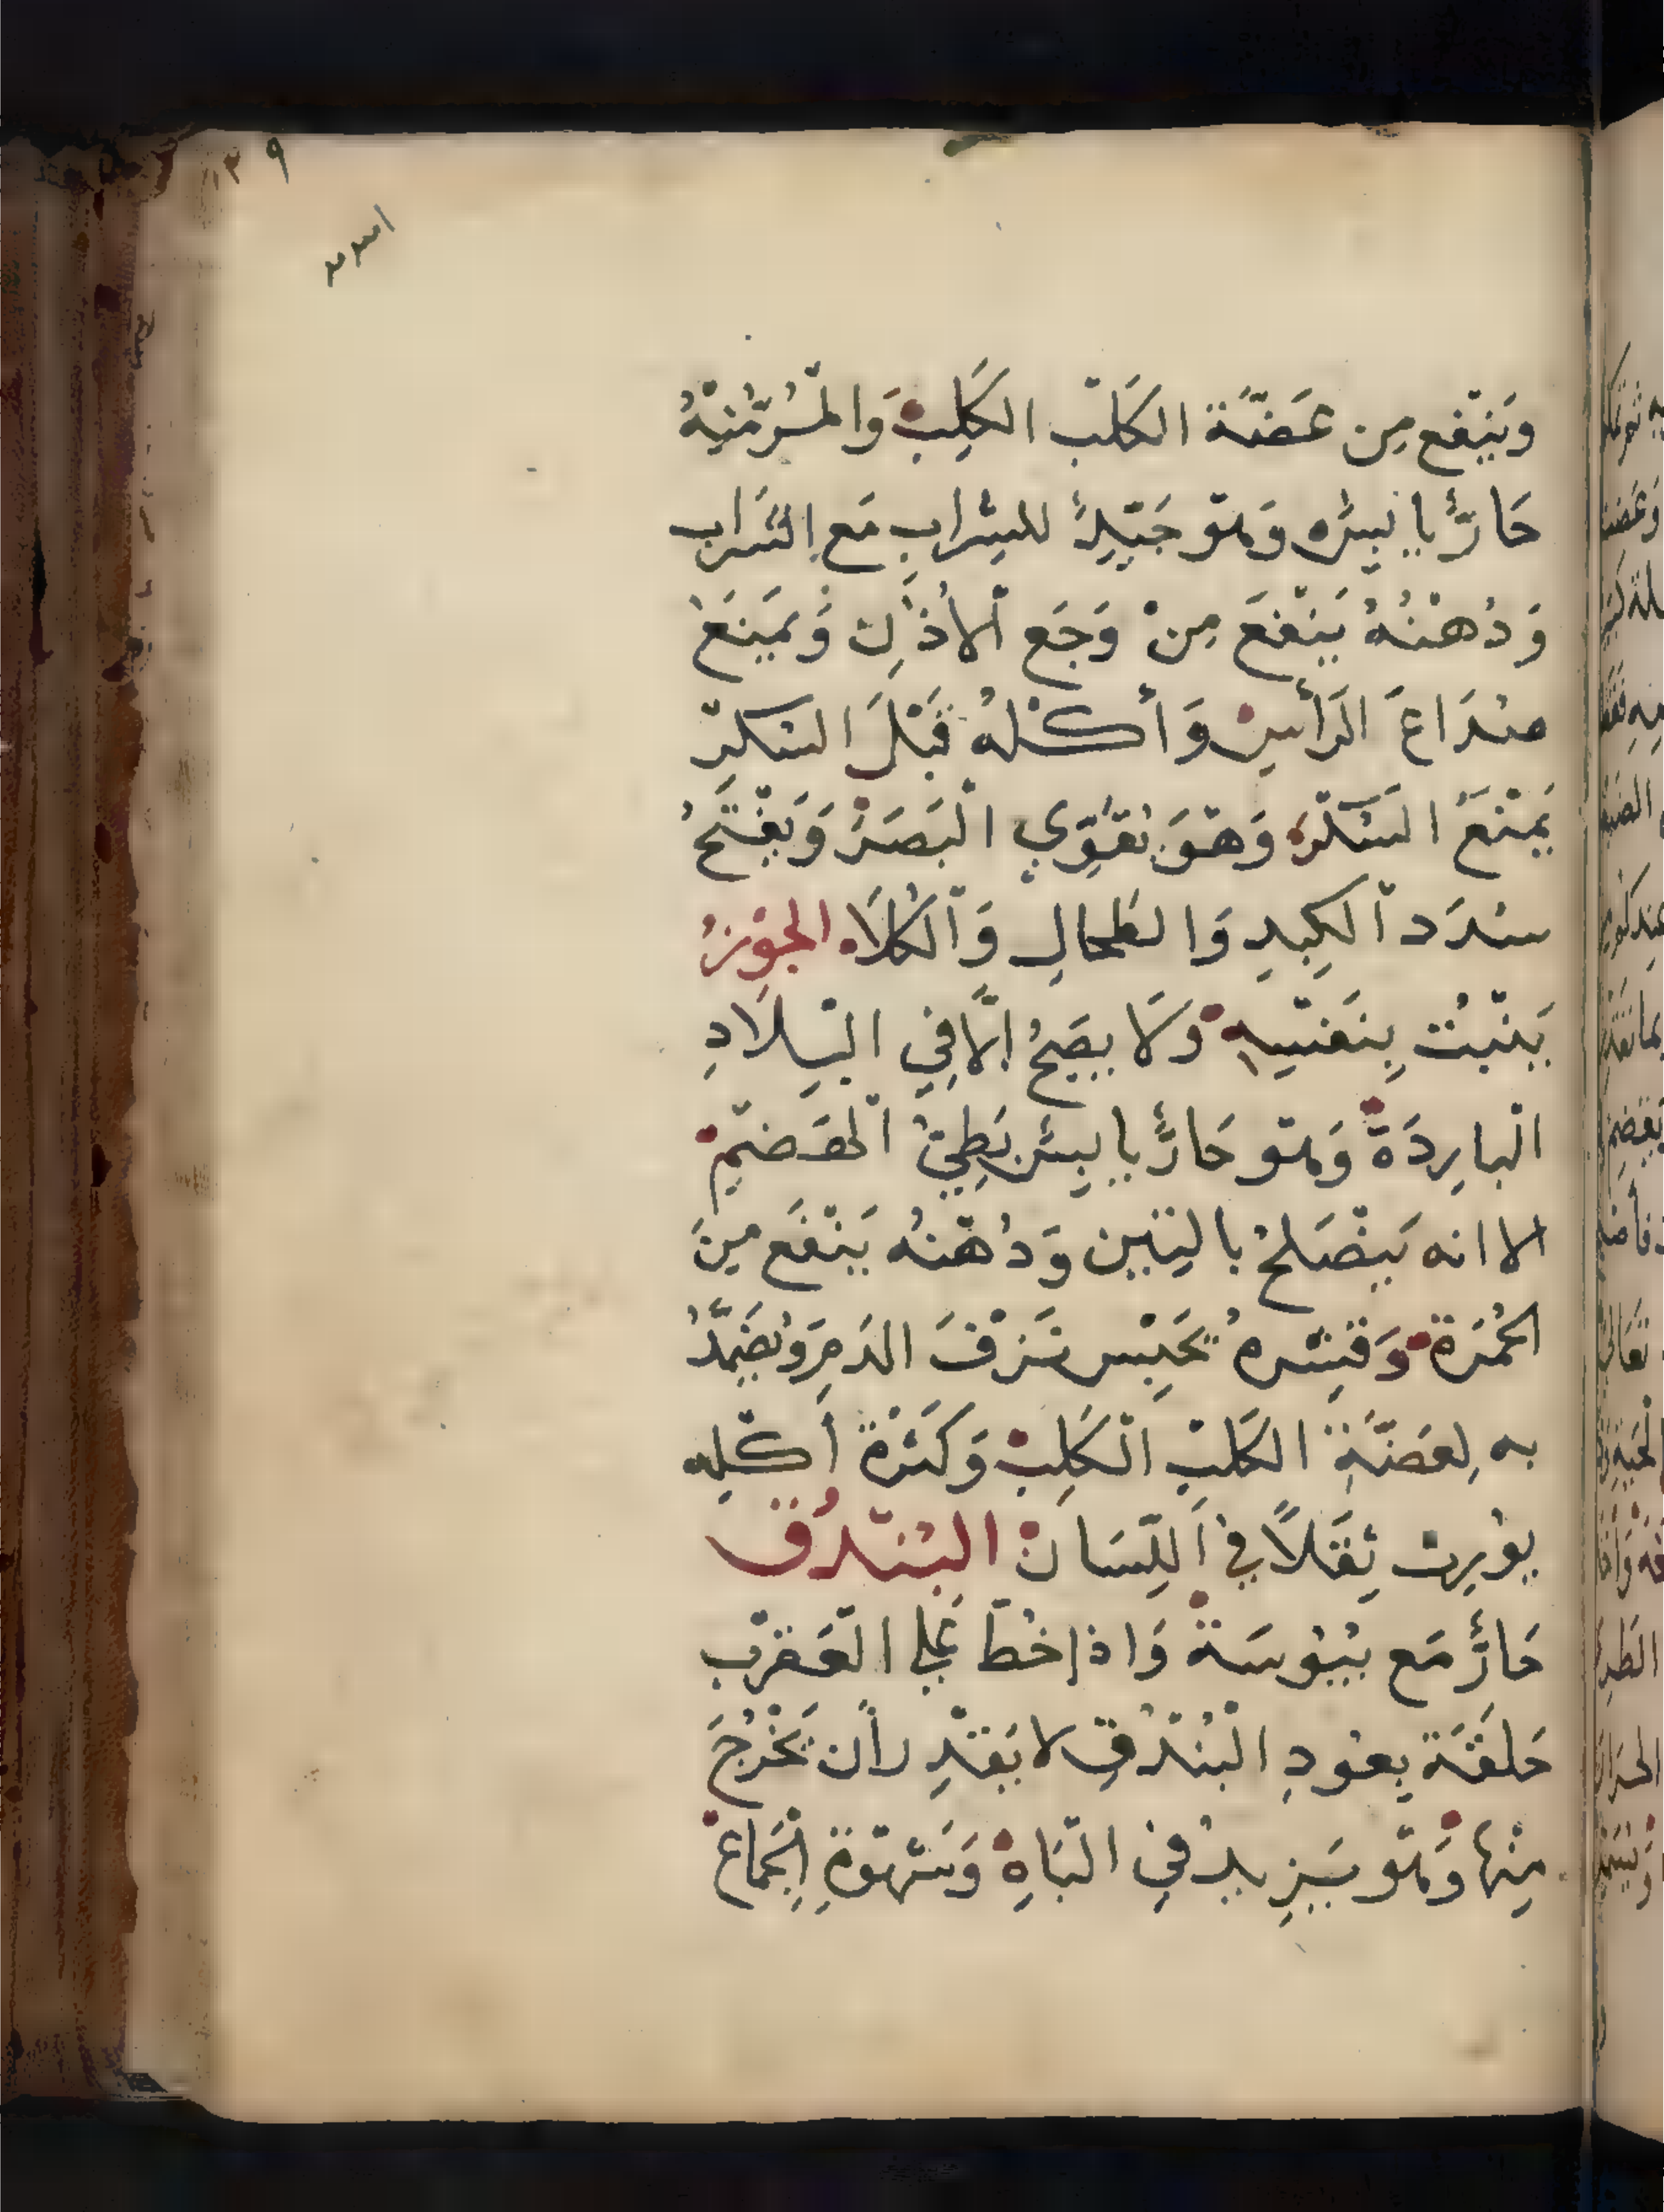 ١٣٩
وَيَنْفَع مِن عَضَّة الكَلْب الكَلِبْ وَالمُرّ مُنِهُ
حَارٌّ يَابِسٌ وَهُو جَيِّدٌ للشراب مَع الشَراب
وَدُهْنُهُ يَنْفَعَ مِنْ وَجَع الأُذُن وَيَمْنَعُ
صُدَاعَ الرَأْسِ وَأَكْلُهُ قَبْلَ السُكْرِ
يَمْنَعُ السُكْرَ وَهْوَ يُقَوِّي الْبَصَرْ وَيُفَتِّحُ
سُدَد الْكَبِدِ وَالطحالِ وَالْكُلَاه الجَوْزُ
يَنْبُت بِنَفْسِهِ وَلَا يصِحُّ الَّا فِي البِلَادِ
الْبارِدَةْ وَهُو حَارٌّ يابِس بَطِيُّ الْهَضْمِ
الا انه يَصْلَحُ بالتِين وَدُهْنُه يَنْفَع مِنَ
الحُمْرَة وَقِشْرهُ يَحْبِس نَزْفَ الدَمِ وَيُضَمَّدُ
به لِعَضَّةِ الكَلْبِ الْكَلِبْ وَكَثْرَة أَكْلِه
يُورِث ثِقَلًا في اَللِّسَانْ البُنْدُق
حَارٌّ مَع يُبُوسَة وَاذا خُطّ عَلى الْعَقْرَب
حَلَقَة بِعُودِ الْبُنْدُقِ لا يَقْدِر أَن تَخْرُجَ
مِنْها وَهُو يَزِيدُ فِي الْبَاهِ وَشَهْوَةِ الْجِماعْ